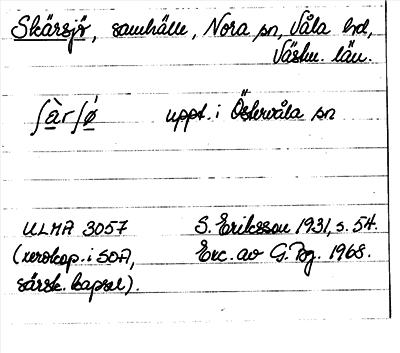 Skärsjö, samhälle, Nora sn, Våla hd,
Västm. län.
ʃà̱rʃǿ̱ uppt. i Östervåla sn
ULMA 3057 S. Eriksson 1931, s. 54.
(xerokop. i SOA, Exc. av G. Bg. 1968.
särsk. kapsel).